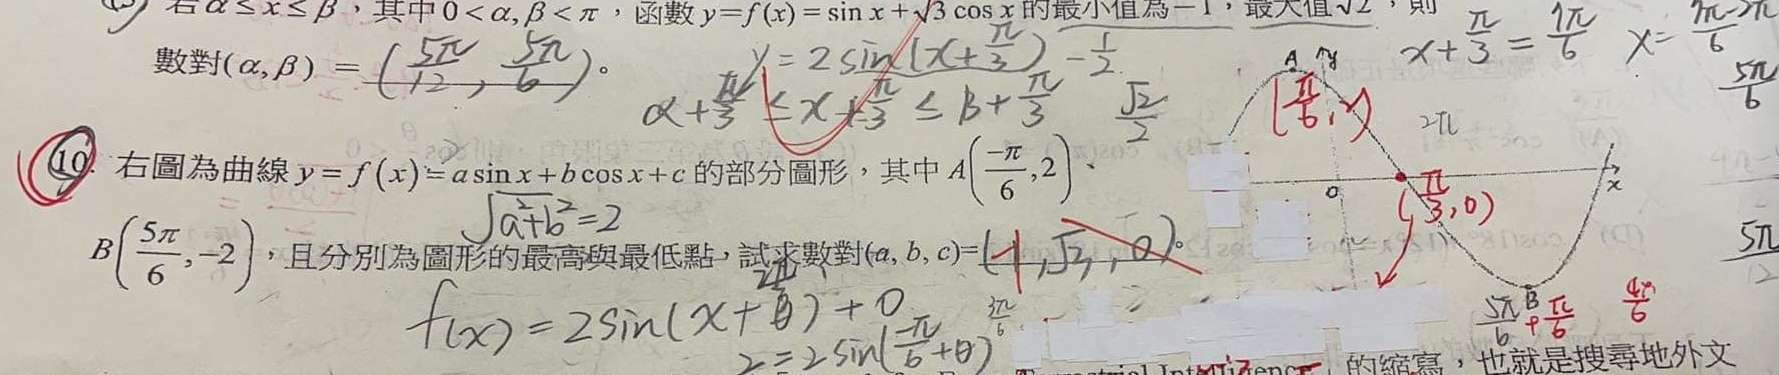 若α≤x≤β，其中0<α,β<π，函數y=f(x)=sin x+√3 cos x的最小值為−1，最大值√2，則
數對(α,β) = (5π/12, 5π/6)。
y=2sin(x+π/3) -1/2
x+π/3=7π/6 x=7π-2π/6
5π/6
α+π/3≤x+π/3≤β+π/3 √2/2
10. 右圖為曲線y=f(x)=a sin x+b cos x+c的部分圖形，其中A(-π/6,2)、
√a²+b²=2
B(5π/6,-2)，且分別為圖形的最高與最低點，試求數對(a,b,c)=(-1,√3,0)。
f(x)=2sin(x+θ)+0
2=2sin(-π/6+θ)
A y
2π
O x
(π/3,0)
B
5π/6+π/6 4π/6
5π/12
的縮寫，也就是搜尋地外文